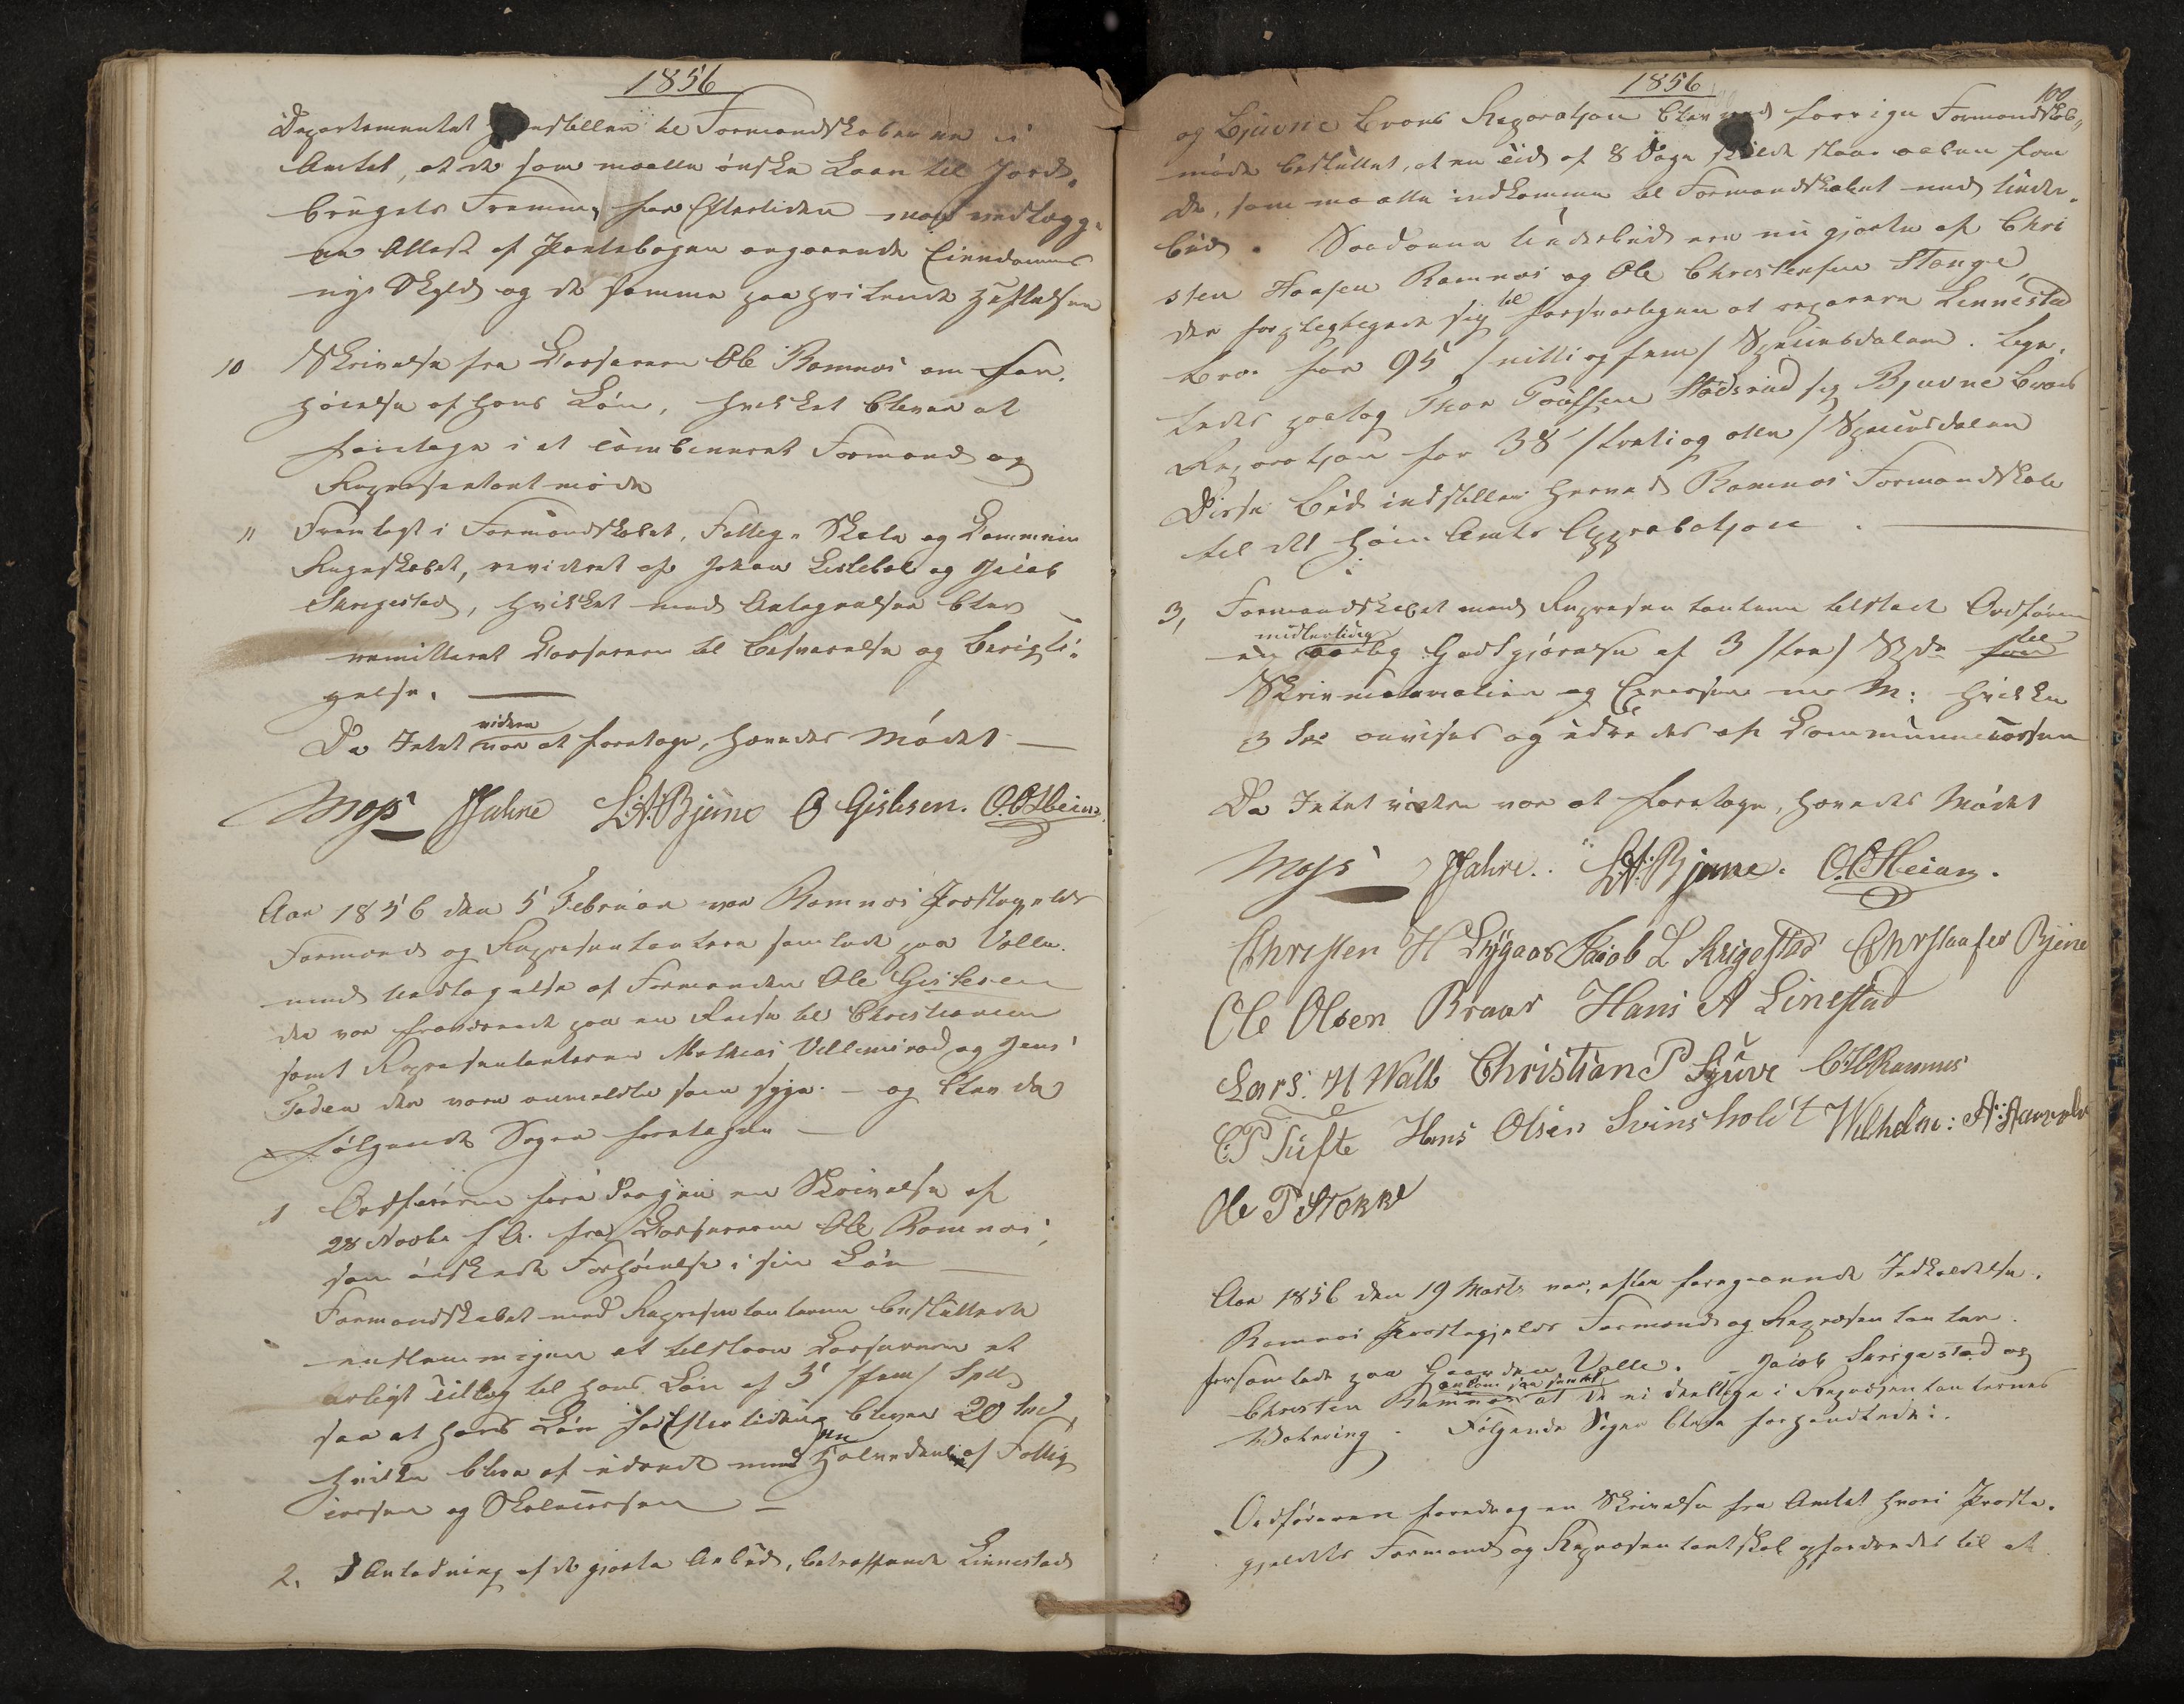 1856
Departementet henstiller til Formandskaberne i
Amtet, at de som maatte ønske Laan til Jord-
brugets Fremme, for Eftertiden maa vedlægge
en Attest af Pantebogen angaaende Eiendommens
nye Skyld og de samme paahvilende Hæftelser
10 Skrivelse fra Kassereren Ole Ramnæs om For-
høielse af hans Løn, hvilket bliver at
foretage i et combineret Formands og
Repræsentantmøde
11 Fremlagt i Formandskabet, Fattig- Skole og Kommune
Regnskabet, revideret af Johan Lislebøe og Jacob
Skrigestad, hvilket med Antegnelser blev
remitteret Kassereren til Besvarelse og Berigti-
gelse.
Da Intet videre var at foretage, hævedes Mødet
Moss JJahre L.A.Bjune O Gislesen. O.C.Heian
Aar 1856 den 5 Februar var Ramnæs Præstegjelds
Formænd og Repræsentantere samlede paa Valle.
med Undtagelse af Formanden Ole Gislesen
der var fraværende paa en Reise til Christiania
samt Repræsentanterne Mathias Villemsrød og Jens
Foden der vare anmeldte som syge. – og blev da
følgende Sager foretagne
1 Ordføreren foredrog en Skrivelse af
28 Novbr f A. fra Kassereren Ole Ramnæs,
som ønskede Forhøielse i sin Løn
Formandskabet med Repræsentanterne besluttede
enstemmigen at tilstaae Kassereren et
aarligt Tillæg til hans Løn af 5 /fem/ Spd
saa at hans Løn for Eftertiden bliver 20 Spd
hvilke blive at udrede med en Halvdel af Fattig
cassen og Skolecassen
2. I Anledning af de gjorte Anbud, betræffende Linnestad
1856
100
og Bjuvne Broes Reparation blev ved forrige Formandskabs
møde besluttet, at en Tid af 8 Dage skulde staae aaben for
de, som maatte indkomme til Formandskabet med Under-
bud. Saadanne Underbud ere nu gjorte af Chri
sten Hansen Ramnæs og Ole Christensen Stange,
der forpligtigede sig til forsvarligen at reparere Linnestad
Bro for 95 /nitti og fem/ Speciesdaler. Lige-
ledes paatog Thor Paulsen sig Bjuvne Broes
Reparation for 38 /tretti og otte/ Speciesdaler
Disse Bud indstilles herved Ramnæs Formandskab
til det høie Amts Approbation.
3, Formandskabet med Repræsentanterne tilstod Ordføreren
en midlertidig aarlig Godtgjørelse af 3 /tre/ Spd til for
Skrivematerialier og m: m: hvilke
3 Spd anvises og udredes af Kommunecassen
Da Intet videre var at foretage, hævedes Mødet
Moss JJahre. L.A.Bjune. O.C.Heian.
Christen H Lygaas Jacob L Skrigestad Christaafer Bjune
Ole Olsen Braar Hans A Linestad
Lars. H Walb Christian P Gjuve C.H.Ramnes
C P Tufte Hans Olsen Svinsholdt Wilhelm: A:
Ole P Stokke
Aar 1856 den 19 Marts var, efter foregaaende Indkaldelse,
Ramnæs Præstegjelds Formænd og Repræsentanter
forsamlede paa Gaarden Valle. – Jacob Skrigestad og
Christen Ramnæs at de ei deeltage i Repræsentanternes
Votering. Følgende Sager bleve forhandlede:
Ordføreren foredrog en Skrivelse fra Amtet hvori Præste-
gjeldets Formænd og Repræsentantskab opfordredes til at